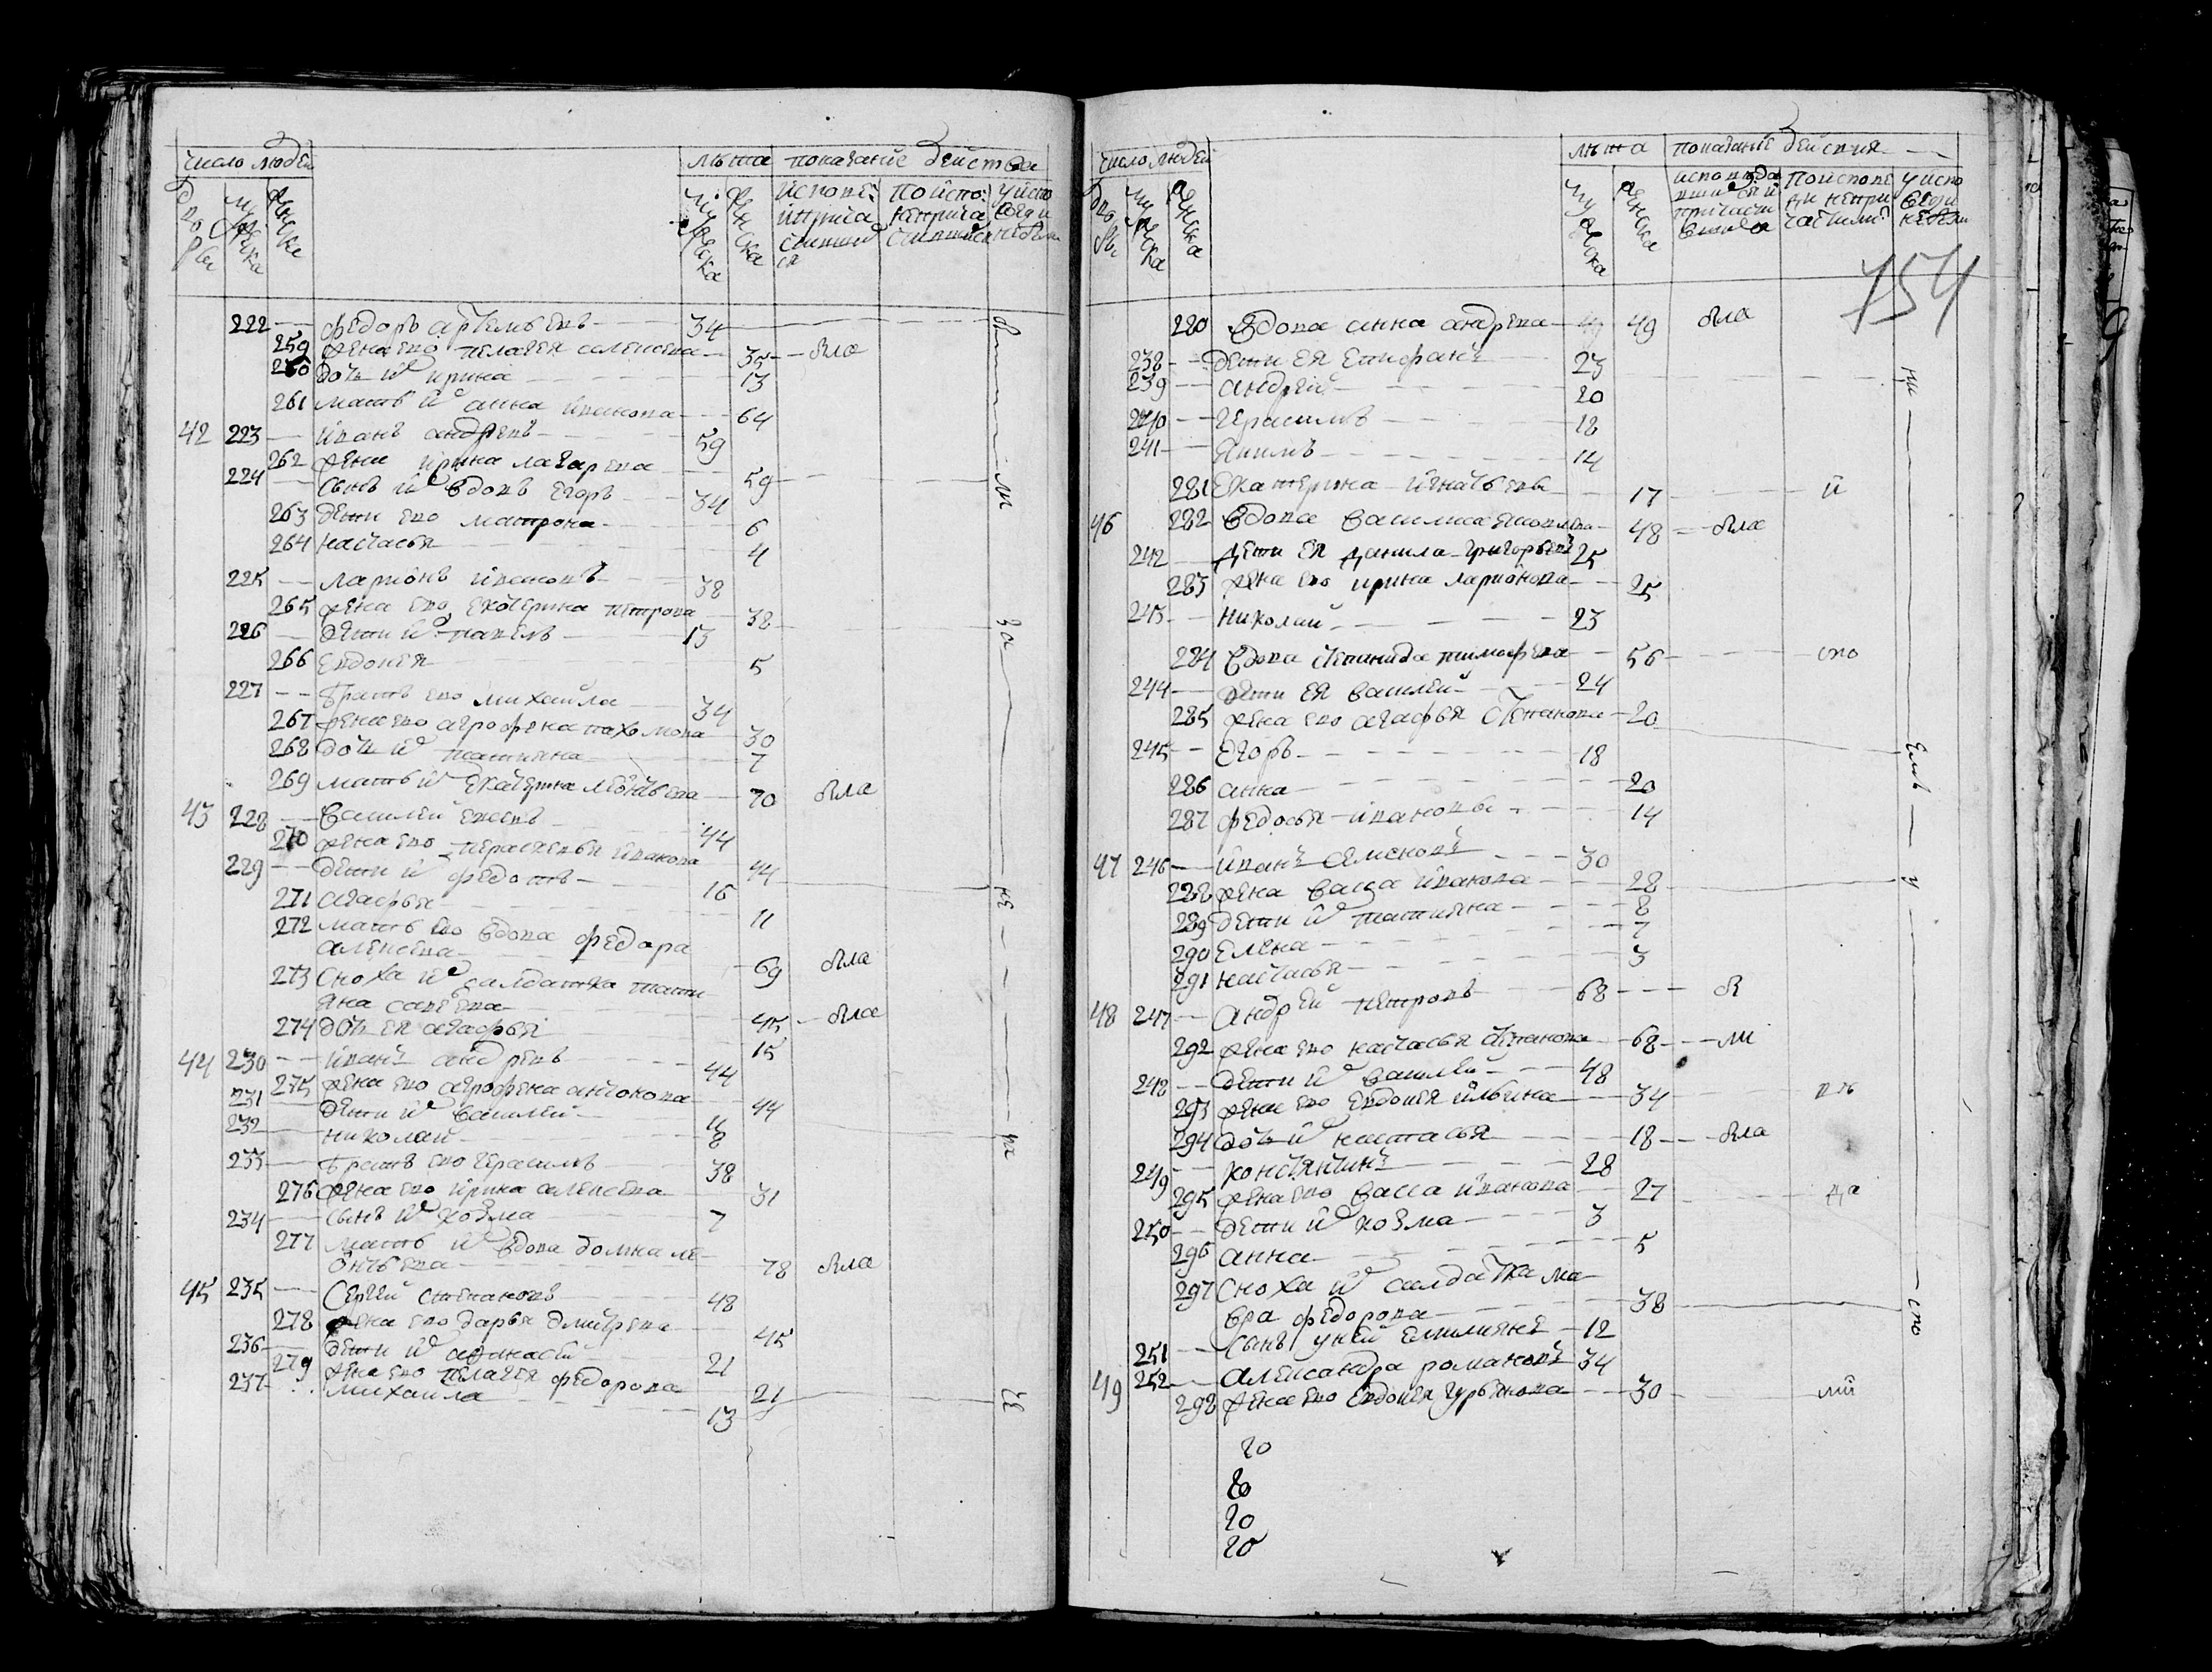 число людей лѣта показание действа
дворы мужска женска мужеска женска исповѣ: и прича стившиися по испо: непричастившися у испо веди небыли
222 Федоръ артемьевъ 34
259 жена ево пелагея алеѯеева 35 была
260 дочь их ирина 13
261 мать их анна иванова 64
42 223 иванъ андревъ 59
262 жена ирина лазарева 59
224 сынъ их вдовъ егоръ 34
263 дети ево матрона 6
264 настасья 4
225 ларионъ ивановъ 38
265 жена ево екатерина петрова 38
226 дети их павелъ 13
266 евдокея 5
227 братъ ево михаила 34
267 жена ево агрофена пахомова 30
268 дочь их татияна 7
269 мать их екатерина леонтьева 70 была
43 228 василей 44
270 жена ево парасковья иванова 44
229 дети их федотъ 16
271 агафья 11
272 мать ево вдова федора
алеѯеева 69 была
273 сноха их салдатка тати
яна савева 45 была
274 дочь ея агафья 15
44 230 иванъ андревъ 44
275 жена ево агрофена антонова 44
231 дети их василей 11
232 николай 8
233 братъ ево герасимъ 38
276 жена ево ирина алеѯеева 31
234 сынъ их козма 7
277 мать их вдова домна ле
онтьева 78 была
45 235 сергей степановъ 48
278 жена ево дарья дмитрева 45
236 дети их афонасей 21
279 жена ево пелагея федорова 21
237 михаила 13
число людей лѣта показание действия
154
280 вдова анна андрева 49 была
238 дети ея епифанъ 23
239 андрей 20
240 герасимъ 18
241 якимъ 14
281 екатерина игнатьева 17
46 282 вдова василиса яковлева 48 была
242 дети ея данила григорьевъ 25
283 жена ево ирина ларионова 25
243 николай 23
284 вдова степанида тимофева 56
244 дети ея василей 24
285 жена ево агафья степанова 20
245 егоръ 18
286 анна 20
287 федосья ивановы 14
47 246 иванъ семеновъ 30
288 жена васса иванова 28
289 дети их татияна 8
290 елена 7
291 настасья 3
48 247 андрей петровъ 68
292 жена ево настасья степанова 68
248 дети их василей 48
293 жена ево евдокея ильина 34
294 дочь их настасья 18 была
249 констянтинъ 28
295 жена ево васса иванова 27
250 дети их козма 3
296 анна 5
297 сноха их салдатка ма
вра федорова 38
251 сынъ у ней емилиянъ 12
49 252 алеѯандра романовъ 34
298 жена ево евдокея гурьянова 30
20
20
20
20